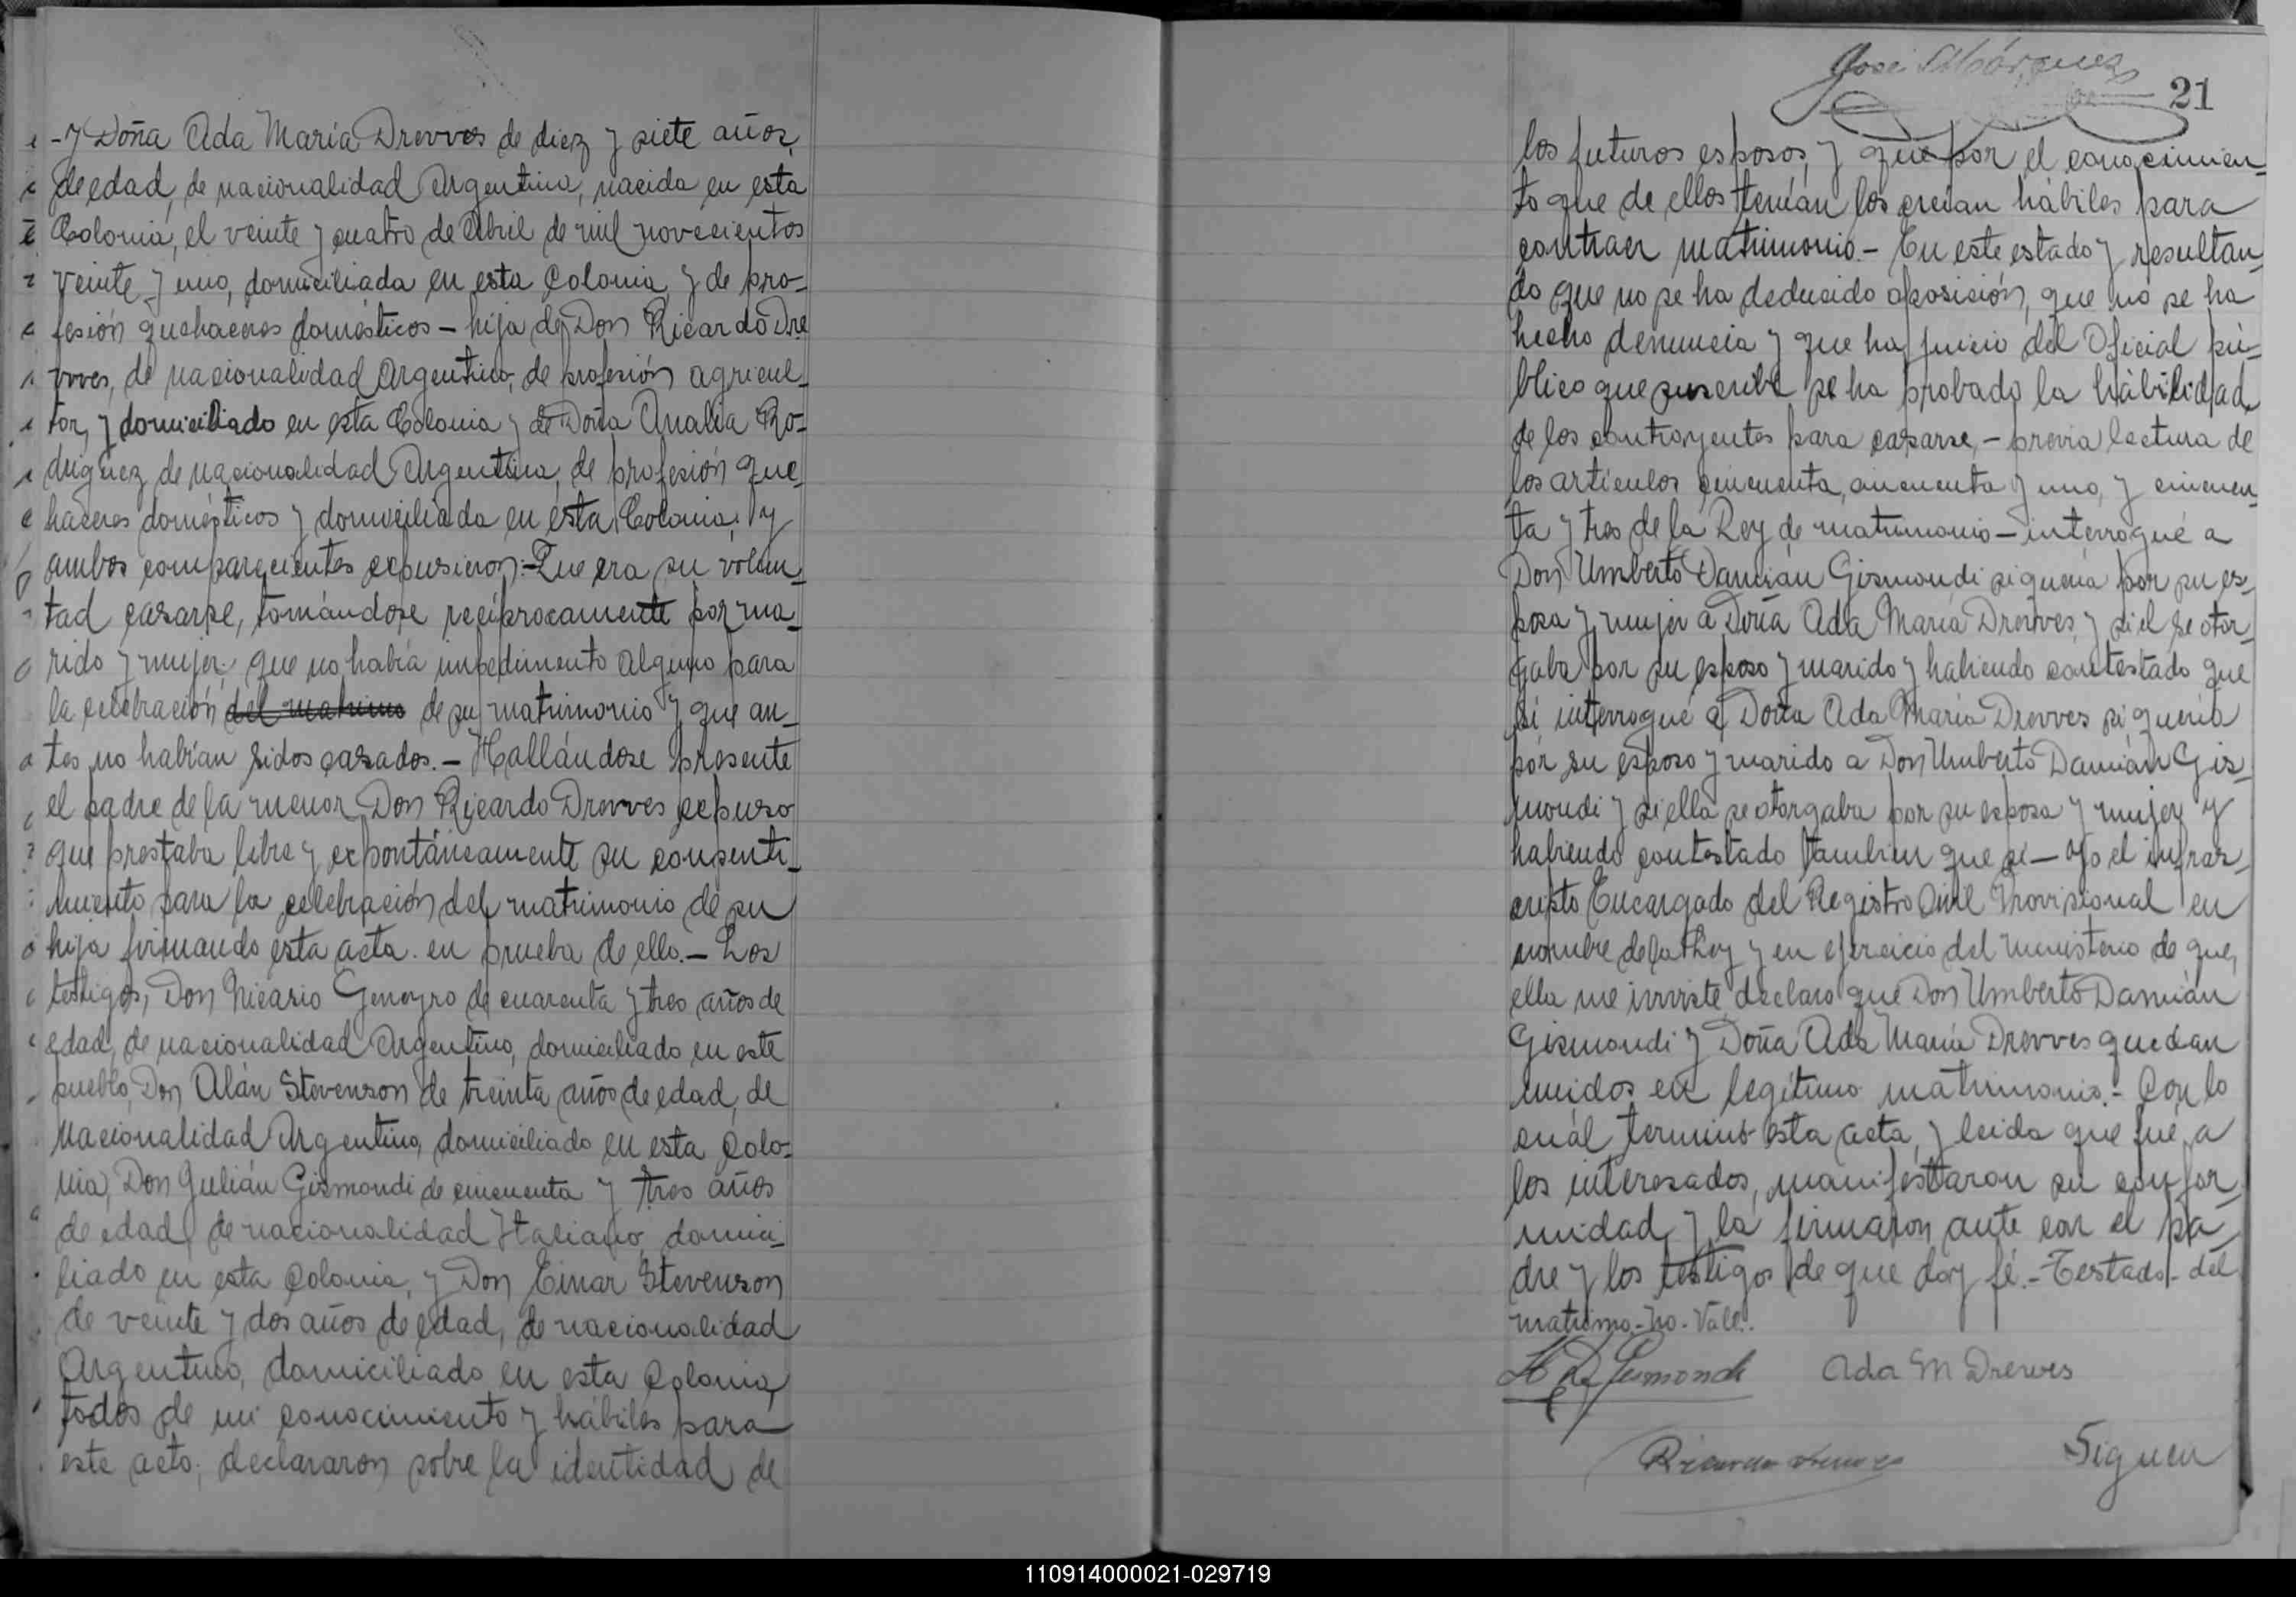 - y Doña Ada María Drevves de diez y siete años
de edad, de nacionalidad Argentina, nacida en esta
Colonia, el veinte y cuatro de Abril de mil novecientos
veinte y uno, domiciliada en esta Colonia, y de pro-
fesión quehaceres domésticos - hija de Don Ricardo Dre
vves, de nacionalidad Argentino, de profesión agricul-
tor, y domiciliado en esta Colonia y de Doña Analia Ro-
driguez de nacionalidad Argentina, de profesión que-
haceres domésticos y domiciliada en esta Colonia: y
ambos comparecientes expusieron:- Que era su volun-
tad casarse, tomándose recíprocamente por ma-
rido y mujer; que no había impedimento alguno para
la celebración del matrimo de su matrimonio y que an-
tes no habían sidos casados. - Hallándose presente
el padre de la menor Don Ricardo Drevves expuso
que prestaba libre y expontáneamente su consenti-
miento para la celebración del matrimonio de su
hija firmando esta acta en prueba de ello. - Los
testigos, Don Nicario de cuarenta y tres años de
edad, de nacionalidad Argentino, domiciliado en este
pueblo, Don Alán Stevenson de treinta años de edad, de
nacionalidad Argentino, domiciliado en esta Colo-
nia, Don Julián Gismondi de cincuenta y tres años
de edad, de nacionalidad Italiano, domici-
liado en esta Colonia, y Don Einar Stevenson
de veinte y dos años de edad, de nacionalidad
Argentino, domiciliado en esta Colonia,
todos de mi conocimiento y hábiles para
este acto; declararon sobre la identidad de
José Márquez
21
los futuros esposos, y que por el conocimien-
to que de ellos tenían los creían hábiles para
contraer matrimonio. - En este estado y resultan-
do que no se ha deducido oposición, que no se ha
hecho denuncia y que ha juicio del Oficial pú-
blico que suscribe se ha probado la habilidad
de los contrayentes para casarse, - previa lectura de
los artículos cincuenta, cincuenta y uno, y cincuen-
ta y tres de la Ley de matrimonio - interrogué a
Don Umberto Damián Gismondi si quería por su es-
posa y mujer a Doña Ada María Drevves y si el se otor-
gaba por su esposo y marido y habiendo contestado que
sí, interrogué a Doña Ada María Drevves si quería
por su esposo y marido a Don Umberto Damián Gis-
mondi y si ella se otorgaba por su esposa y mujer y
habiendo contestado tambien que sí - Yo el infras-
cripto Encargado del Registro Civil Provisional en
nombre de la Ley y en ejercicio del ministerio de que,
ella me inviste, declaro que Don Umberto Damián
Gismondi y Doña Ada María Drevves quedan
unidos en legítimo matrimonio. - Con lo
cuál terminó esta acta, y leida que fué, a
los interesados, manifestaron su confor-
midad y la firmaron ante con el pa-
dre y los testigos de que doy fé. - Testado - del
matrimo - No - Vale.
H D Gismondi Ada M Drewes
Ricardo Drewes
Siguen
110914000021-029719